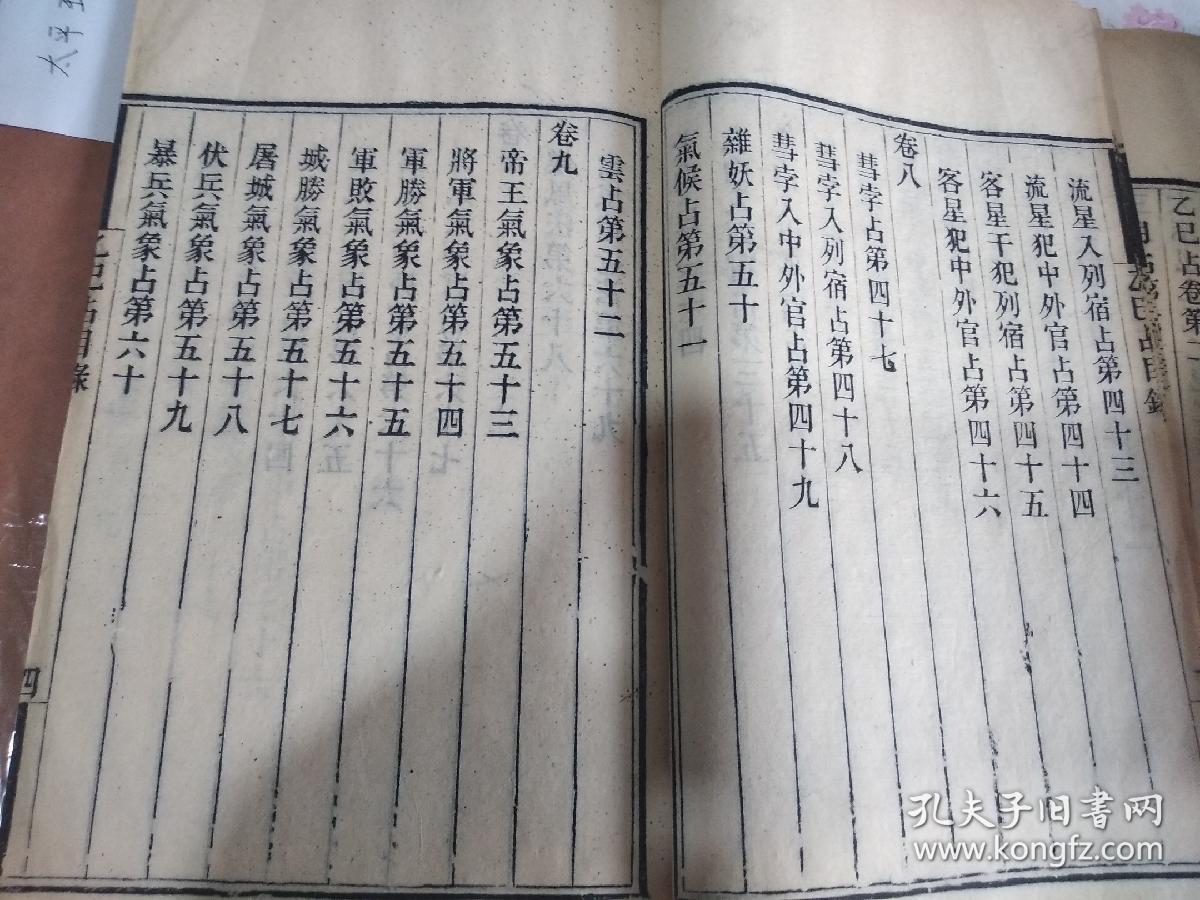 乙巳占卷第二
乙巳占目錄
流星入列宿占第四十三
流星犯中外官占第四十四
客星干犯列宿占第四十五
客星犯中外官占第四十六
卷八
彗孛占第四十七
彗孛入列宿占第四十八
彗孛入中外官占第四十九
雜妖占第五十
氣候占第五十一
雲占第五十二
卷九
帝王氣象占第五十三
將軍氣象占第五十四
軍勝氣象占第五十五
軍敗氣象占第五十六
城勝氣象占第五十七
屠城氣象占第五十八
伏兵氣象占第五十九
暴兵氣象占第六十
乙巳占目錄
四
太平
孔夫子旧书网
www.kongfz.com